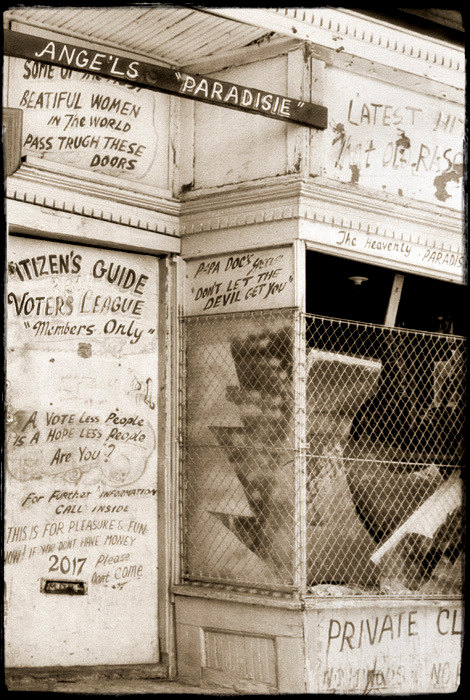 ANGE'LS "PARADISIE"
SOME OF THE MOST
BEATIFUL WOMEN
IN The WORLD
PASS TRUGH THESE
DOORS
LATEST
The Heavenly PARADIS
PAPA DOC'S
"DON'T LET THE
DEVIL GET YOU"
ITIZEN'S GUIDE
VOTERS LEAGUE
"Members Only"
A VOTE Less People
IS A HOPE Less People
Are You?
For FurTher INFORMATION
CALL INSIDE
THIS IS FOR PLEASURE & FUN
NOW! IF YOU DONT HAVE MONEY
2017 Please
Dont Come
PRIVATE CL